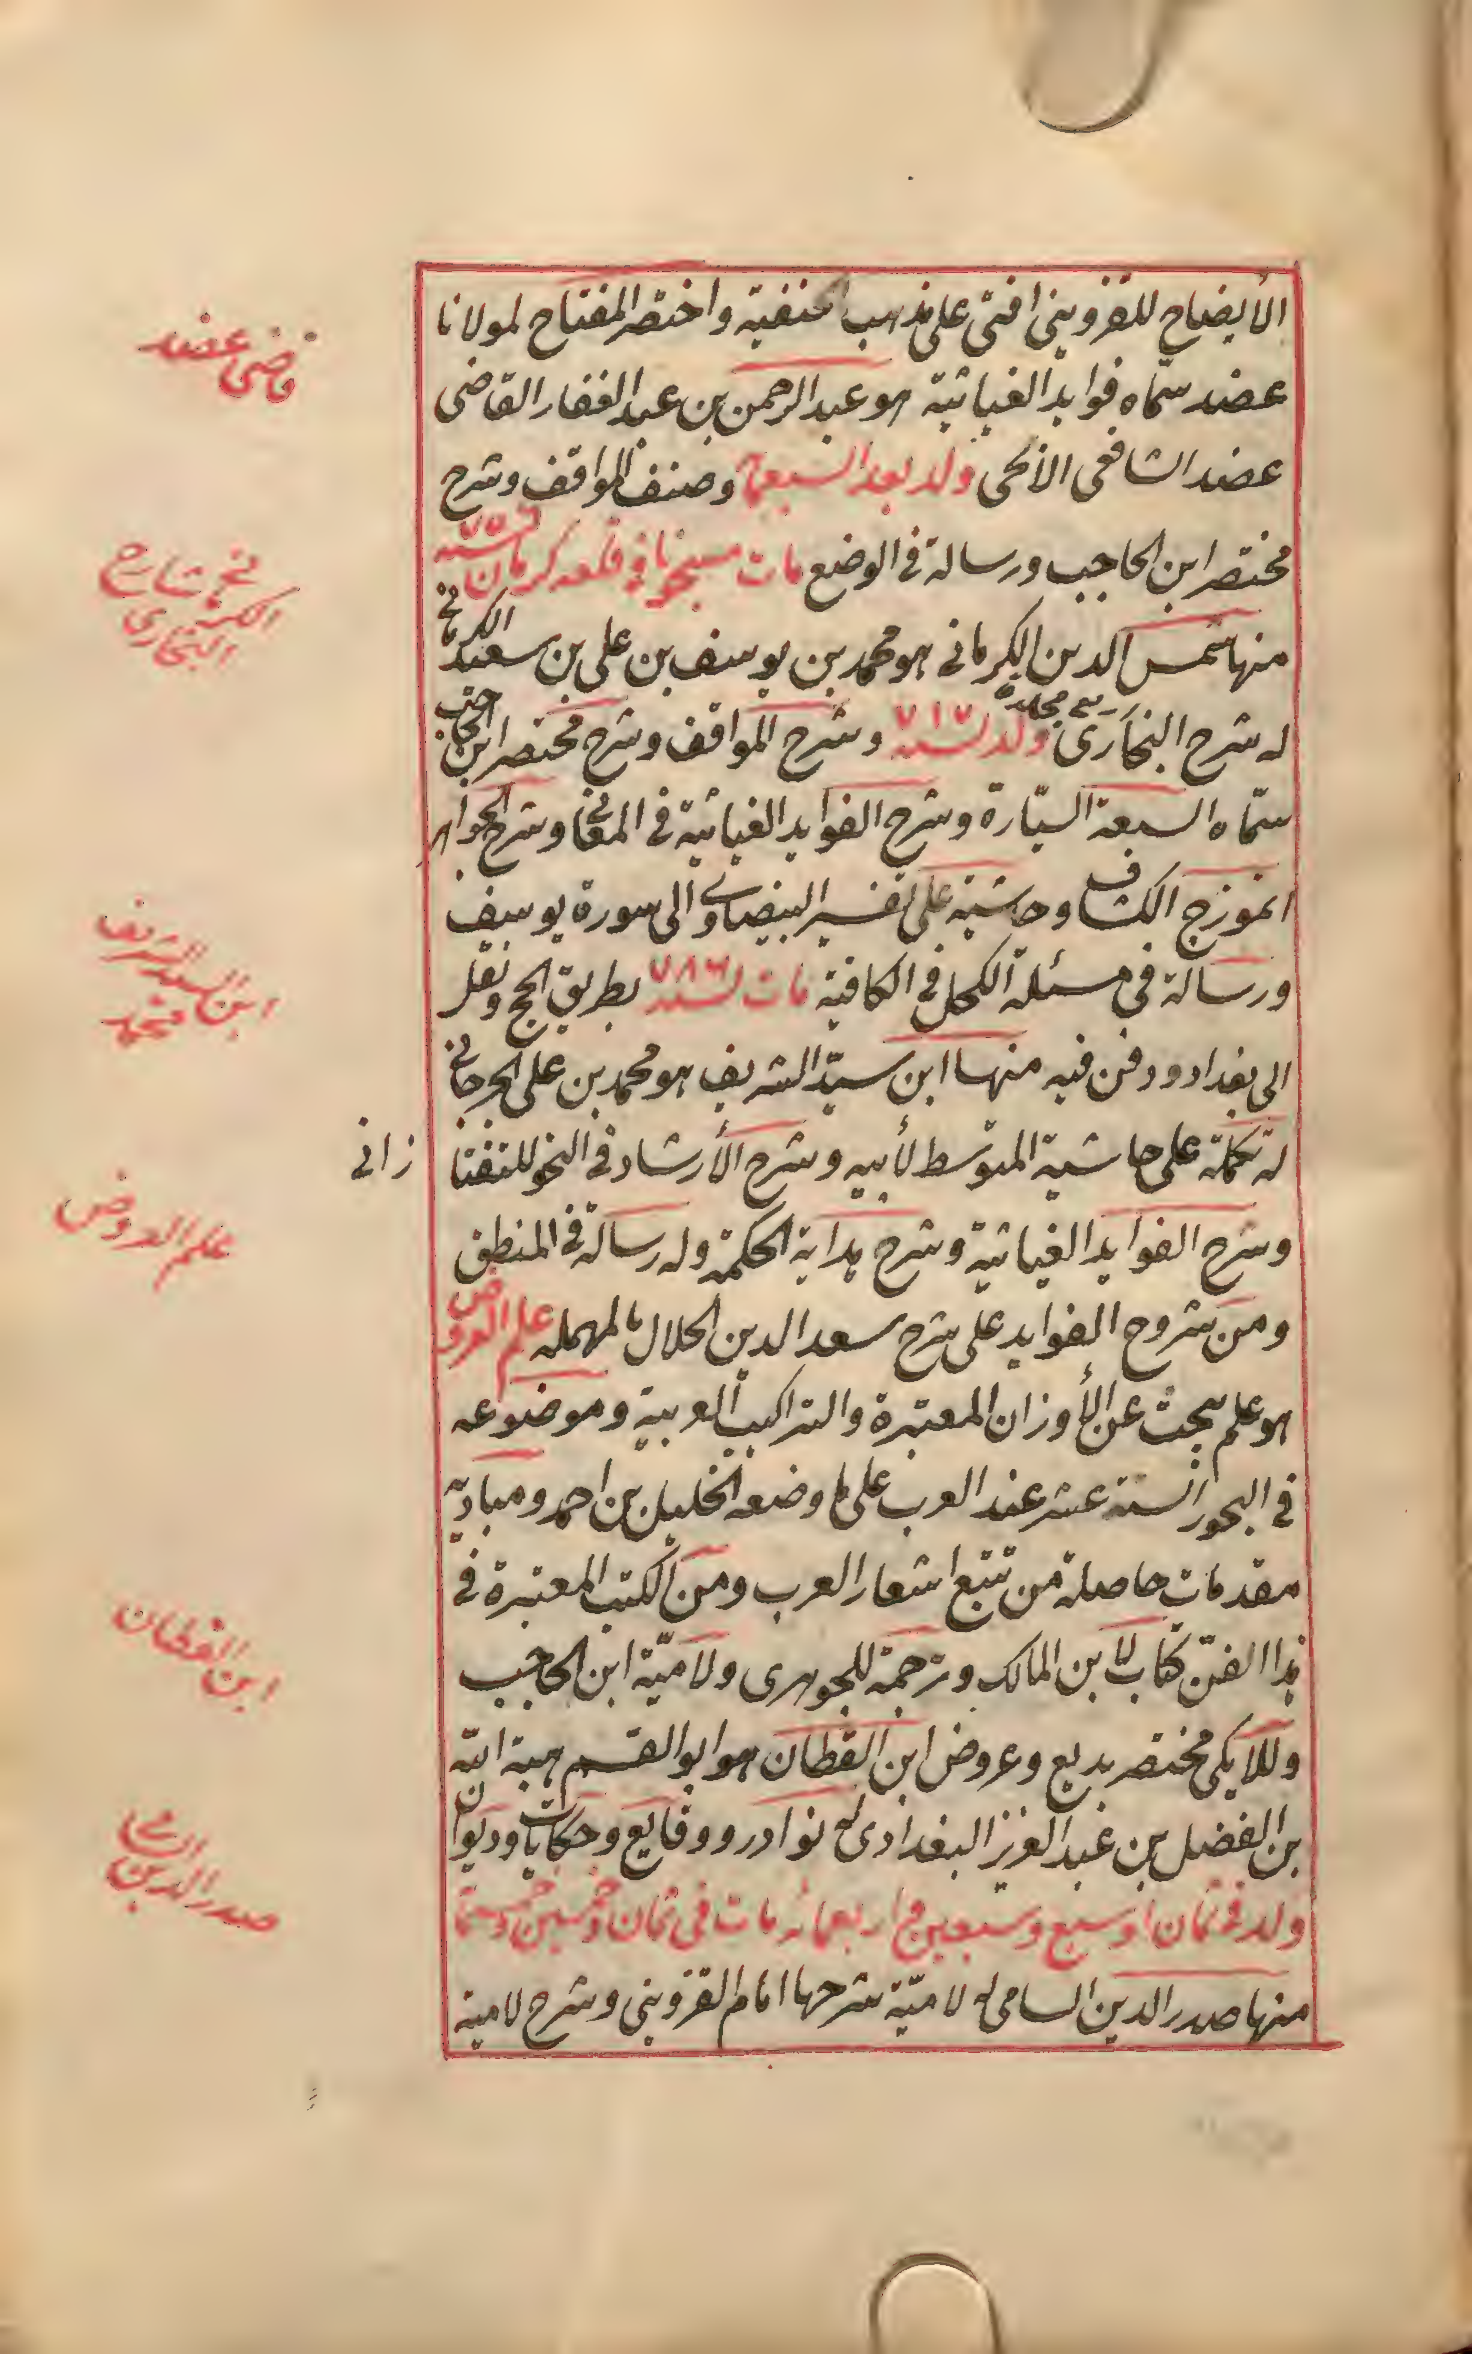 الأيضاح للقزويني افتى على مذهب الحنفية واختصر المفتاح لمولانا
عضد سمّاه فوايد الغياثية هو عبد الرحمن بن عبد الغفار القاضى
عضد الشافعى الأيجى ولد بعد السبعمائة وصنف المواقف وشرح
مختصر ابن الحاجب ورسالة فى الوضع مات مسجونا فى قلعه كرمان سنه ٧٥٦
منها شمس الدين الكرمانى هو محمد بن يوسف بن على بن سعيد الكرمانى
له شرح البخارى ولد سنه ٧١٧ وشرح المواقف وشرح مختصر ابن الحاجب
سمّاه السبعة السيّارة وشرح الفوايد الغياثية فى المعانى وشرح الجواهر
انموزج الكشاف وحاشية على تفسير البيضاوى الى سورة يوسف
ورسالة فى مسئلة الكحل فى الكافية مات سنه ٧٨٦ بطريق الحج ونقل
الى بغداد ودفن فيه منها ابن سيّد الشريف هو محمد بن على الجرجانى
له تكملة على حاشية المتوسط لأبيه وشرح الأرشاد فى النحو للتفتا زانى
وشرح الفوايد الغياثية وشرح هداية الحكمة وله رسالة فى المنطق
ومن شروح الفوايد على شرح سعد الدين الحلال بالمهمله علم العروض
هو علم يبحث عن الأوزان المعتبرة والتراكيب العربية وموضوعه
فى البحور الستة عشر عند العرب على ما وضعه الخليل بن احمد ومباديّه
مقدمات حاصلة من تتبع اشعار العرب ومن الكتب المعتبرة فى
هذا الفنّ كتاب لابن المالك وترجمة للجوهرى ولاميّة ابن الحاجب
وللايكى مختصر بديع وعروض ابن القطان هو ابو القسم هبة الله
بن الفضل بن عبد العزيز البغدادى له نوادر ووقايع وحكايات وديوان
ولد فى ثمان او سبع وسبعين واربعمائه مات فى ثمان وخمسين وخمسمائة
منها صدر الدين السامى له لاميّة شرحها امام القزوينى وشرح لامية
قاضى عضد
شارح البخارى
ابن السيد الشريف محمد
علم العروض
ابن القطان
صدر الدين السامى